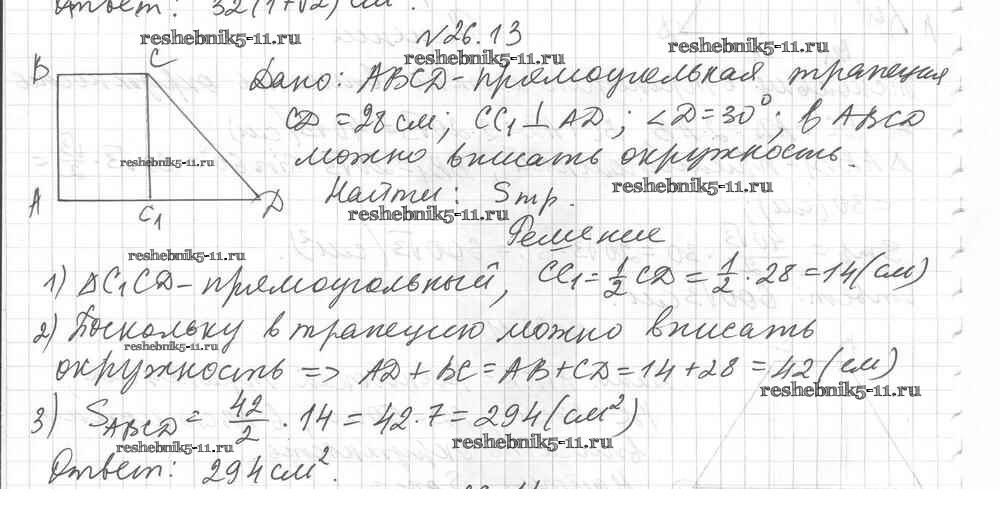 Ответ: 32(1+√2) см².
№26.13
reshebnik5-11.ru
reshebnik5-11.ru
reshebnik5-11.ru
B
C
Дано: ABCD - прямоугольная трапеция
CD = 28 см; CC₁ ⊥ AD; ∠D = 30°; в ABCD
можно вписать окружность.
reshebnik5-11.ru
reshebnik5-11.ru
A
C₁
D
Найти: Sтр.
reshebnik5-11.ru
Решение
reshebnik5-11.ru
1) ΔC₁CD - прямоугольный, CC₁ = 1/2 CD = 1/2 · 28 = 14 (см)
2) Поскольку в трапецию можно вписать
reshebnik5-11.ru
окружность => AD + BC = AB + CD = 14 + 28 = 42 (см)
reshebnik5-11.ru
3) S ABCD = 42/2 · 14 = 42 · 7 = 294 (см²)
reshebnik5-11.ru
reshebnik5-11.ru
Ответ: 294 см².